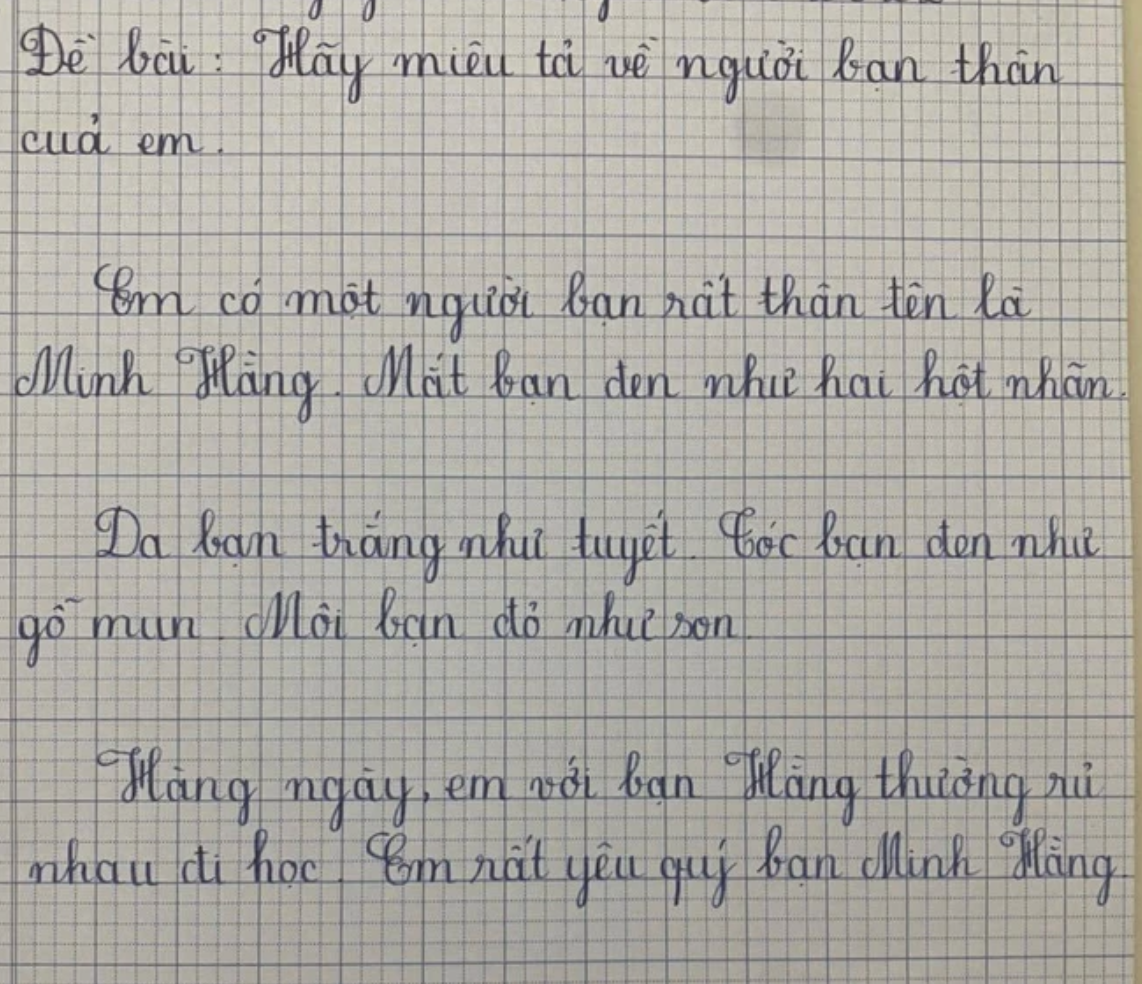 Đề bài : Hãy miêu tả về người bạn thân
của em.
Em có một người bạn rất thân tên là
Minh Hằng. Mắt bạn đen như hai hột nhãn.
Da bạn trắng như tuyết. Tóc bạn đen như
gỗ mun. Môi bạn đỏ như son.
Hàng ngày, em với bạn Hằng thường rủ
nhau đi học. Em rất yêu quý bạn Minh Hằng